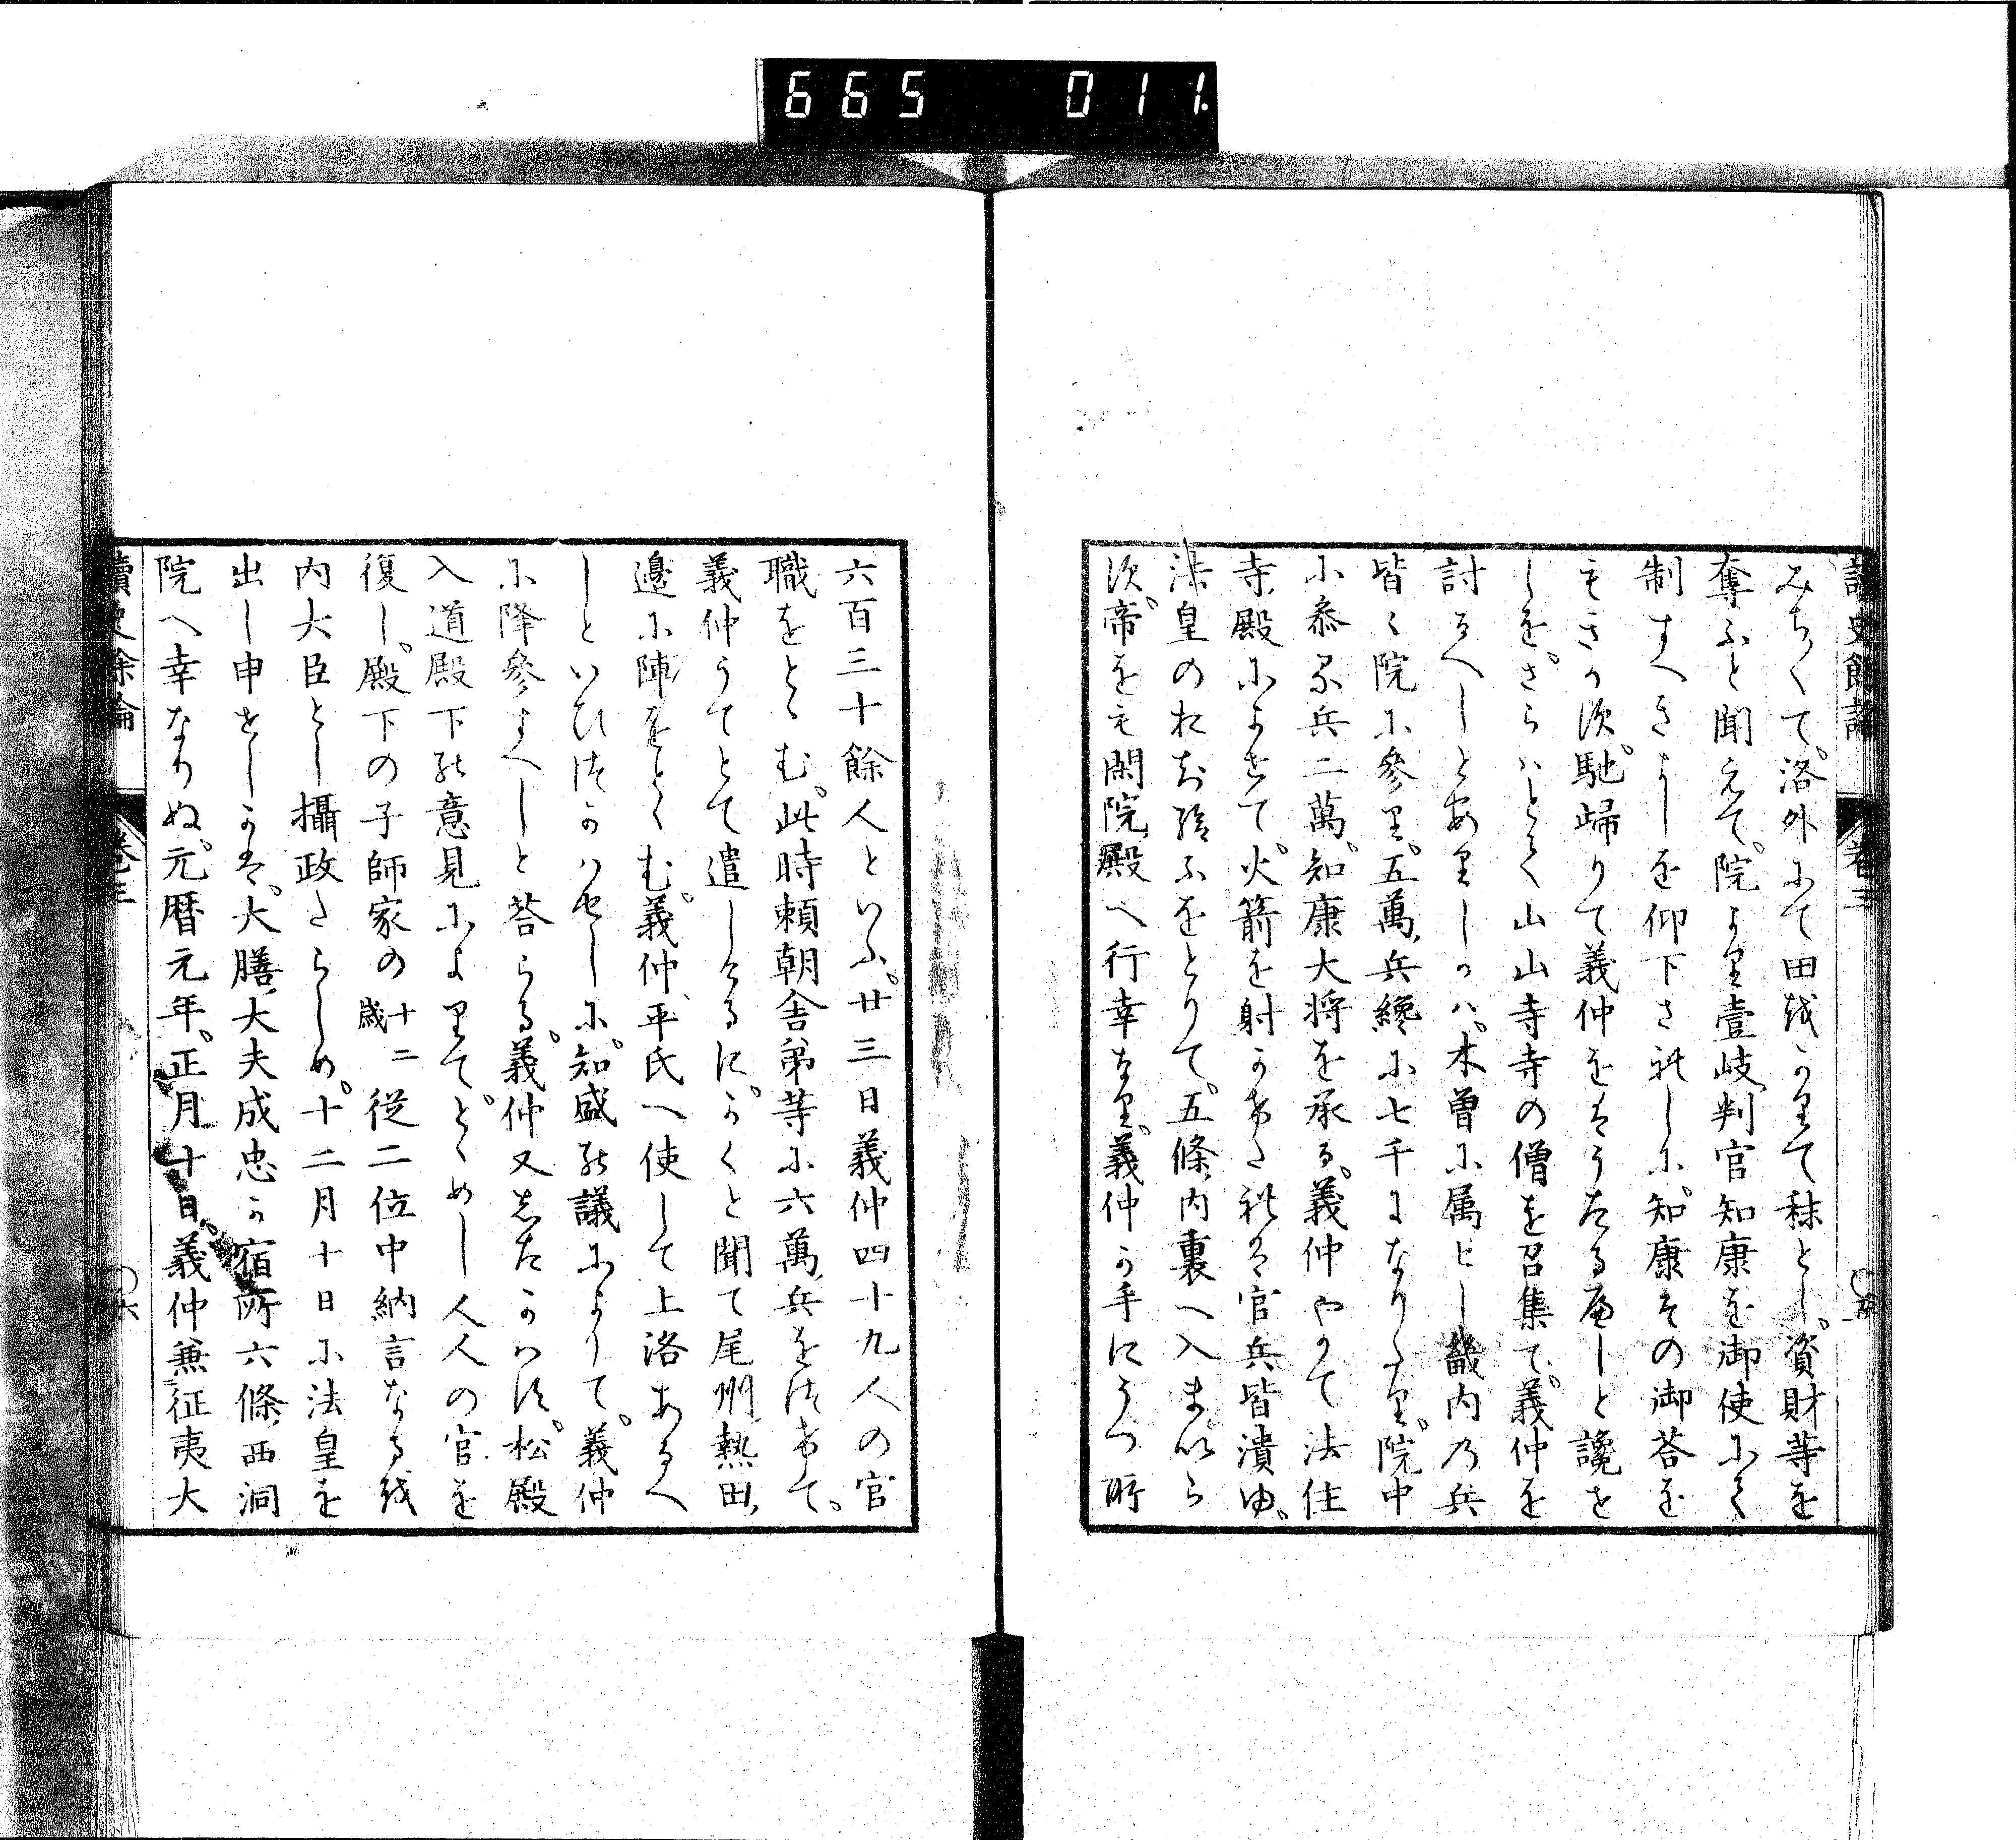 665 011.
讀史餘論 卷三
みちくて。洛外にて田をかりて秣とし。資財等を
奪ふと聞えて。院より壹岐判官知康を御使にて
制すへきよしを仰下されしに。知康その御答を
もきかす。馳歸りて義仲をはうたる而しと讒を
しを。さらはとて山山寺寺の僧を召集て。義仲を
討るへしとありしかハ。木曽に属せし畿内乃兵
皆〻院に參り。五萬兵纔に七千になりたり。院中
に叅る兵二萬。知康大将を承る。義仲やかて法住
寺殿によせて。火箭を射かけされは官兵皆潰ゆ。
法皇のおち給ふをとりて。五條内裏へ入まいら
す。帝をも閑院殿へ行幸なり。義仲か手にうつ所
六百三十餘人といふ。廿三日義仲四十九人の官
職をとゝむ。此時頼朝舎弟等に六萬兵をつけて。
義仲うてとて遣しけるに。かくと聞て尾州熱田
邊に陣をとゝむ。義仲平氏へ使して上洛あるへ
しといひつかハせしに。知盛の議によりて。義仲
に降參すへしと答らる。義仲又したかハす。松殿
入道殿下の意見によりてとゝめし人人の官を
復し。殿下の子師家の十二歳從二位中納言なるを
内大臣とし攝政たらしめ。十二月十日に法皇を
出し申せしかは。大膳大夫成忠か宿所六條西洞
院へ幸なりぬ。元暦元年。正月十日。義仲兼征夷大
讀史餘論 卷三 〇六